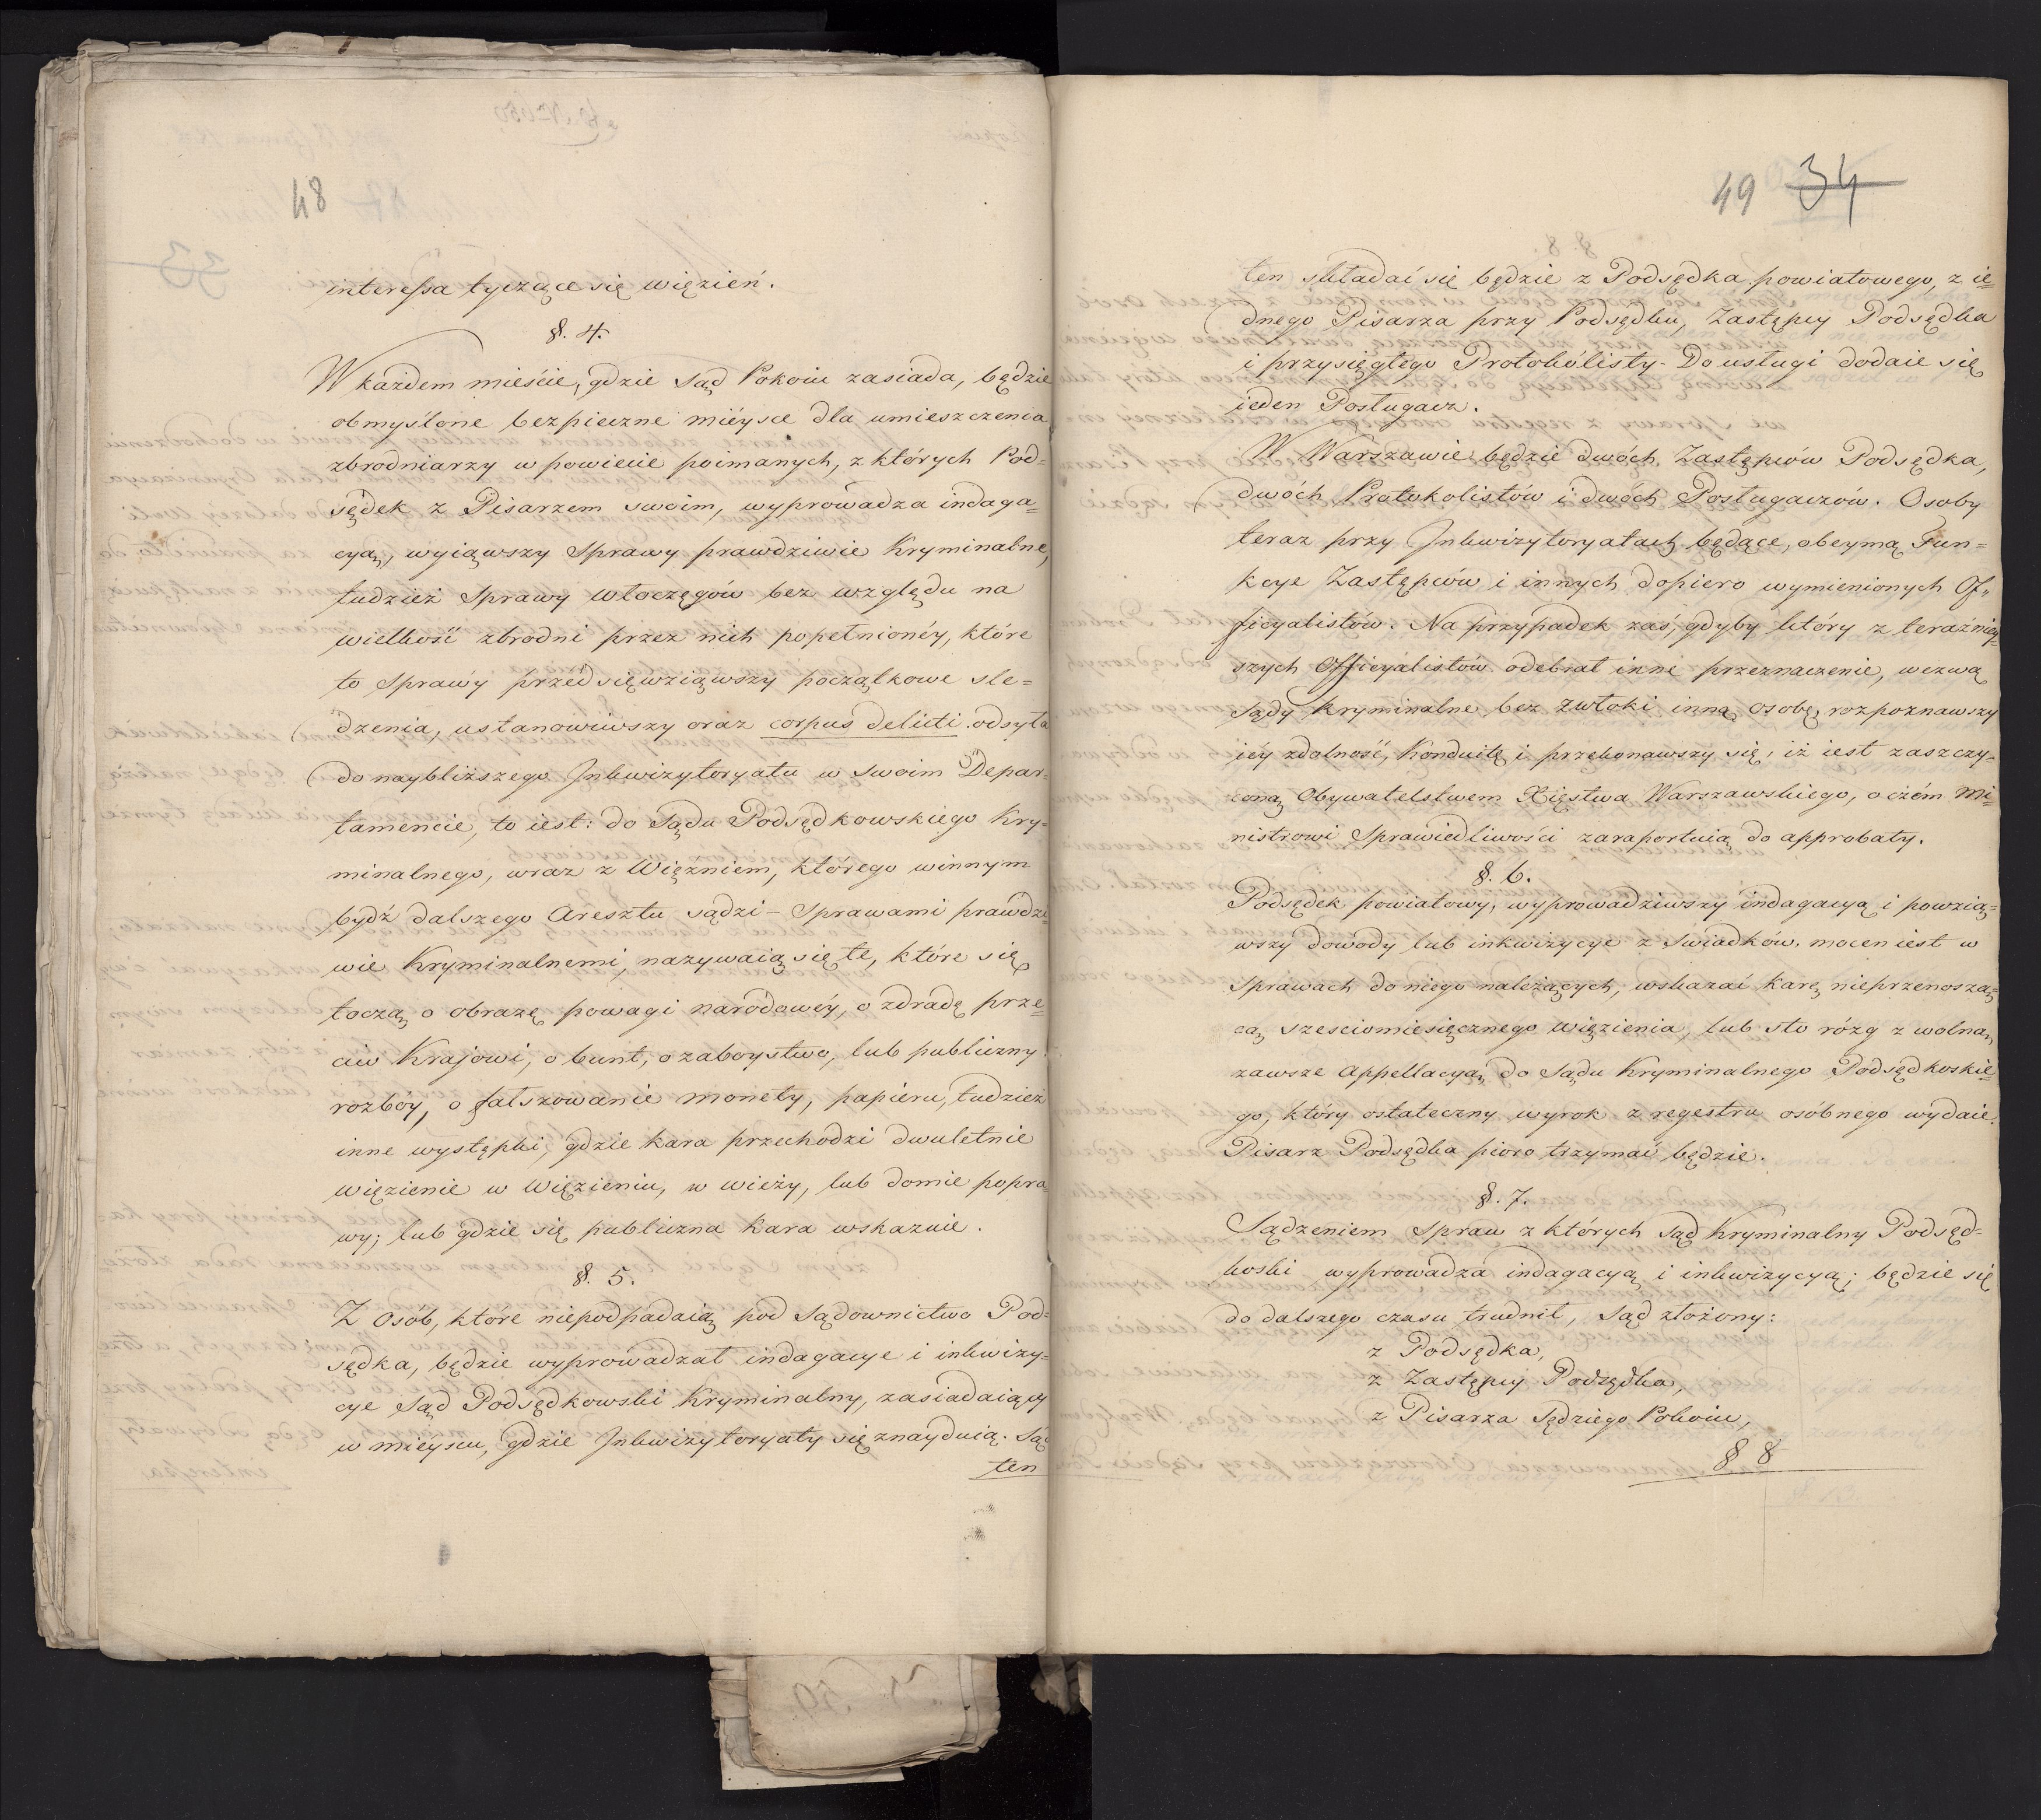 48
interessa tyczące się więzień.
§. 4.
W każdem mieście, gdzie Sąd Pokoiu zasiada, będzie
obmyślone bezpieczne miéysce dla umieszczenia
zbrodniarzy w powiecie poimanych, z których Pod=
sędek z Pisarzem swoim, wyprowadza indaga=
cyą, wyiąwszy Sprawy prawdziwie Kryminalne,
tudzież Sprawy Włoczęgów bez względu na
wielkość zbrodni przez nich popełnionéy, które
to Sprawy przedsięwziąwszy początkowe sle=
dzenia, ustanowiwszy oraz corpus delicti odsyła
do naybliższego Inkwizytoryatu w swoim Depar=
tamencie, to iest: do Sądu Podsędkowskiego Kry=
minalnego, wraz z Więźniem, którego winnym
bydź dalszego Aresztu sądzi – Sprawami prawdzi
wie Kryminalnemi, nazywaią się te, które się
toczą o obrazę powagi narodowéy, o zdradę prze=
ciw Krajowi, o bunt, o zaboystwo, lub publiczny
rozbóy, o fałszowanie monety, papiéru, tudzież
inne występki, gdzie kara przechodzi dwuletnie
więzienie w Więzieniu, w wieży, lub domie popra=
wy; lub gdzie się publiczna kara wskazuie.
§. 5.
Z Osób, które niepodpadaią pod Sądownictwo Pod=
sędka, będzie wyprowadzał indagacye i inkwizy=
cye Sąd Podsędkowski Kryminalny, zasiadaiący
w mieyscu, gdzie Inkwizytoryaty się znayduią. Sąd
ten
49 34
ten składać się będzie z Podsędka powiatowego, z ie=
dnego Pisarza przy Podsędku, Zastępcy Podsędka
i przysięgłego Protokólisty. Do usługi dodaie się
ieden Posługacz.
W Warszawie będzie dwóch Zastępców Podsędka,
dwóch Protokolistów i dwóch Posługaczów. Osoby
teraz przy Inkwizytoryatach będące, obeymą Fun=
kcye Zastępców i innych dopiero wymienionych Of=
ficyalistów. Na przypadek zaś, gdyby który z teraźniey=
szych Officyalistów odebrał inne przeznaczenie, wezwą
Sądy Kryminalne bez zwłoki inną osobę, rozpoznawszy
iey zdolność, Konduitę i przekonawszy się, iż iest zaszczy=
coną Obywatelstwem Xięstwa Warszawskiego, o czém Mi=
nistrowi Sprawiedliwości zaraportuią do approbaty.
§. 6.
Podsędek powiatowy, wyprowadziwszy indagacyą i powzią=
wszy dowody lub inkwizycye z Swiadków, mocen iest w
Sprawach do niego należących, wskazać karę nieprzenoszą=
cą sześciomiesięcznego więzienia, lub sto rózg z wolną
zawsze appellacyą do Sądu Kryminalnego Podsędkoskie=
go, który ostateczny wyrok z regestru osóbnego wydaie.
Pisarz Podsędka pioro trzymać będzie.
§. 7.
Sądzeniem Spraw z których Sąd Kryminalny Podsęd=
koski wyprowadza indagacyą i inkwizycyą; będzie się
do dalszego czasu trudnił, Sąd złożony:
z Podsędka,
z Zastępcy Podsędka,
z Pisarza Sędziego Pokoiu,
§ 8